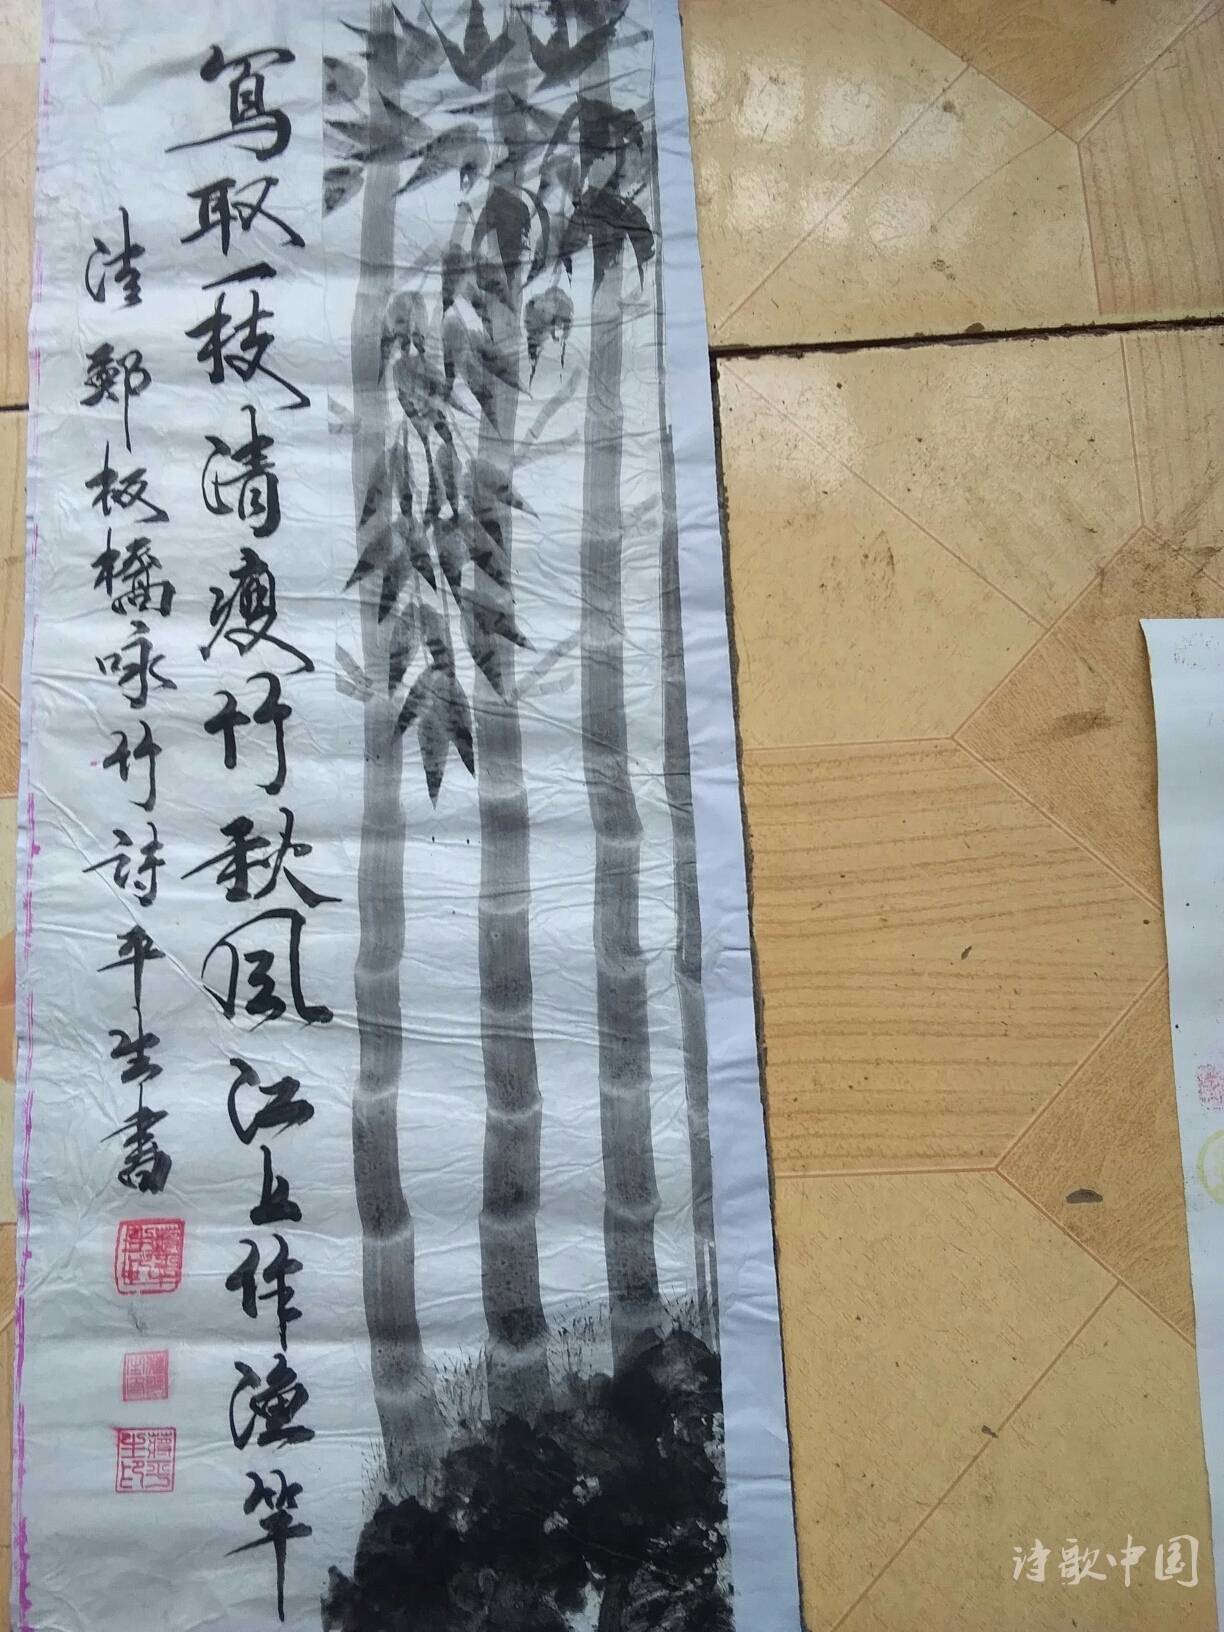 寫取一枝清瘦竹秋風江上作漁竿
清鄭板橋咏竹詩平生書
蔣平生印
诗歌中国